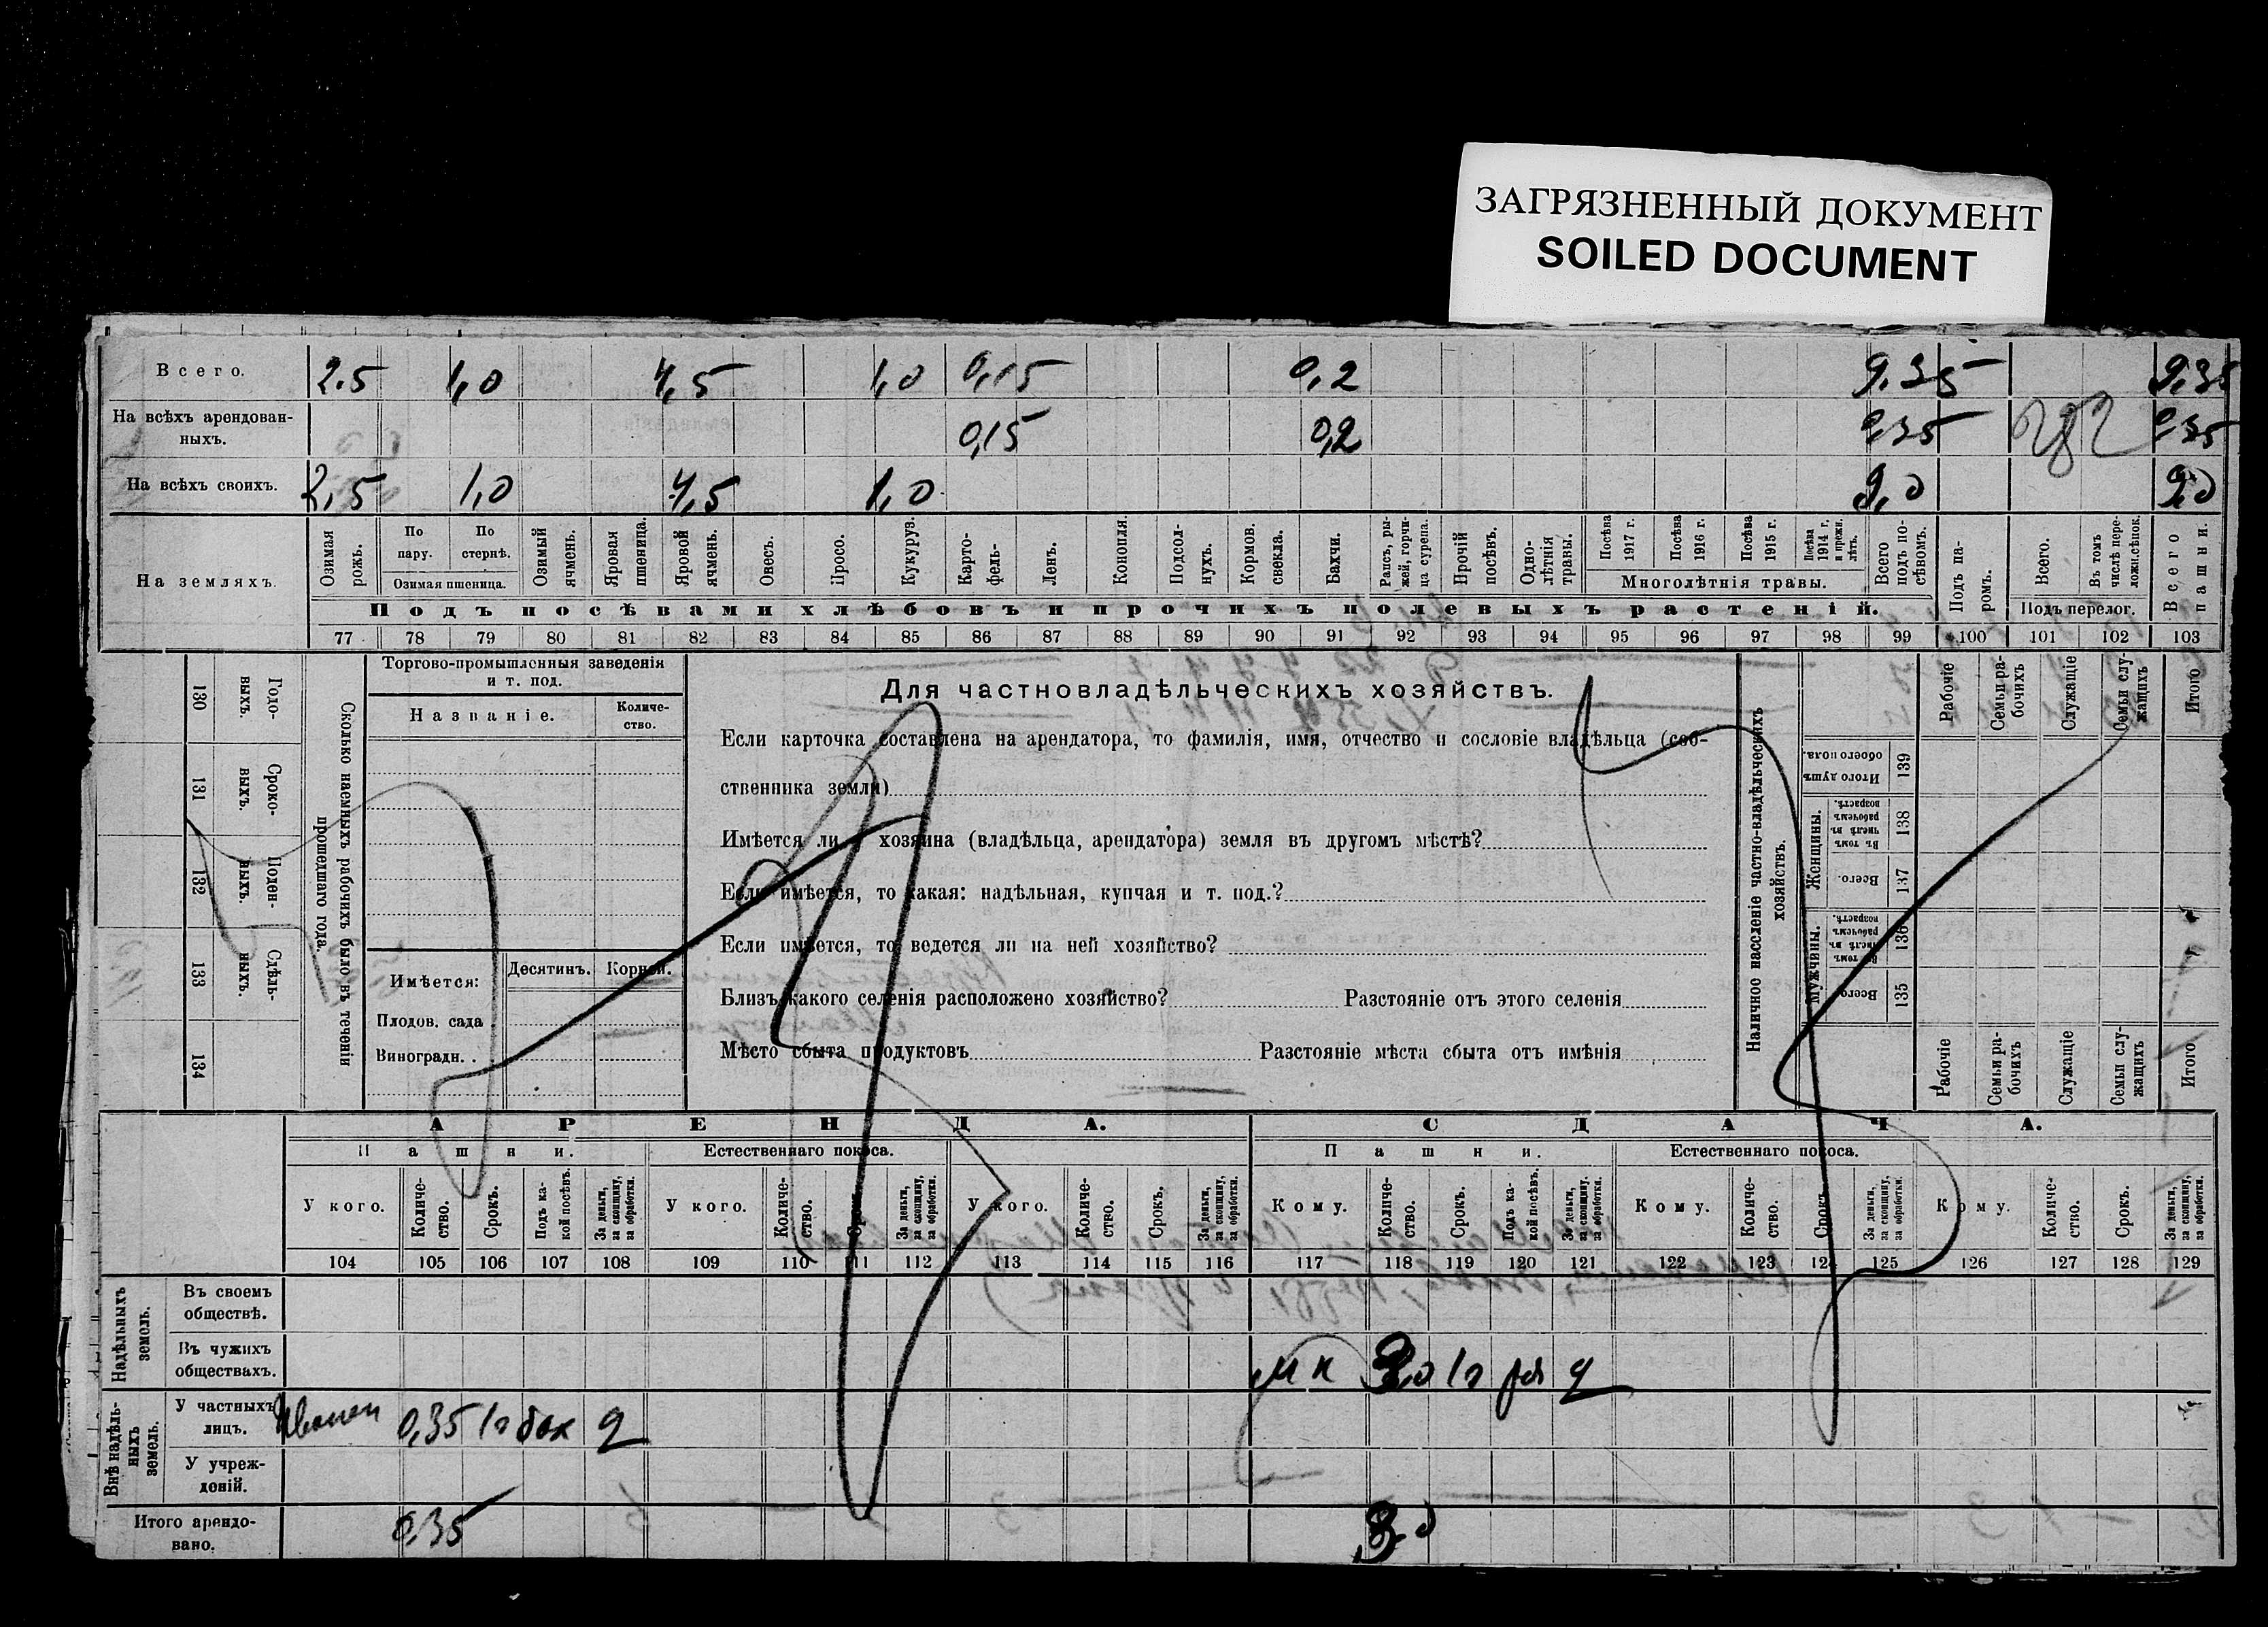 ЗАГРЯЗНЕННЫЙ ДОКУМЕНТ
SOILED DOCUMENT
Всего. 2.5 1,0 4,5 1,0 0,15 0,2 9,35 9,35
На всѣхъ арендован-
ныхъ. 0,15 0,2 0,35 0,35
На всѣхъ своихъ. 2,5 1,0 4,5 1,0 9,0 9,0
На земляхъ.
Озимая рожь.
По пару.
По стернѣ.
Озимая пшеница.
Озимый ячмень.
Яровая пшеница.
Яровой ячмень.
Овесъ.
Просо.
Кукуруз.
Карто-
фель-
Ленъ.
Конопля.
Подсол-
нухъ.
Кормов.
свекла.
Бахчи.
Рапсъ, ры-
жей, горчи-
ца сурепа.
Прочій
посѣвъ.
Одно-
лѣтнія
травы.
Посѣва 1917 г.
Посѣва 1916 г.
Посѣва 1915 г.
Посѣва 1914 г. и прежн. лѣтъ.
Многолѣтнія травы.
Всего подъ по-
сѣвомъ.
Подъ па-
ромъ.
Всего.
Въ томъ числѣ пере-
ложн.сѣнок.
Подъ перелог.
Всего пашни.
Подъ посѣвами хлѣбовъ и прочихъ полевыхъ растеній.
77 78 79 80 81 82 83 84 85 86 87 88 89 90 91 92 93 94 95 96 97 98 99 100 101 102 103
Годо-
выхъ. 130
Сроко-
выхъ. 131
Поден-
ныхъ. 132
Сдѣль-
ныхъ. 133
134
Сколько наемныхъ рабочихъ было въ теченіи
прошедшаго года.
Торгово-промышленныя заведенія
и т. под.
Названіе. Количе-
ство.
Имѣется: Десятинъ. Корней.
Плодов. сада.
Виноградн. . .
Для частновладѣльческихъ хозяйствъ.
Если карточка составлена на арендатора, то фамилія, имя, отчество и сословіе владѣльца (соб-
ственника земли)
Имѣется ли у хозяина (владѣльца, арендатора) земля въ другомъ мѣстѣ?
Если имѣется, то какая: надѣльная, купчая и т. под.?
Если имѣется, то ведется ли на ней хозяйство?
Близъ какого селенія расположено хозяйство? Разстояніе отъ этого селенія
Мѣсто сбыта продуктовъ Разстояніе мѣста сбыта отъ имѣнія
Наличное населеніе частно-владѣльческихъ
хозяйствъ.
Рабочіе
Семьи ра-
бочихъ
Служащіе
Семьи слу-
жащихъ
Итого
Итого душъ
обоего пола. 139
Женщины.
Въ томъ числѣ въ рабочемъ возрастѣ. 138
Всего. 137
Мужчины.
Въ томъ числѣ въ рабочемъ возрастѣ. 136
Всего. 135
Рабочіе
Семьи ра-
бочихъ
Служащіе
Семьи слу-
жащихъ
Итого
АРЕНДА. СДАЧА.
Пашни. Естественнаго покоса. Пашни. Естественнаго покоса.
У кого. Количе-
ство. Срокъ. Подъ ка-
кой посѣвъ. За деньги,
за скопщину,
за обработки.
У кого. Количе-
ство. Срокъ. За деньги,
за скопщину,
за обработки.
У кого. Количе-
ство. Срокъ. За деньги,
за скопщину,
за обработки.
Кому. Количе-
ство. Срокъ. Подъ ка-
кой посѣвъ. За деньги,
за скопщину.
за обработки.
Кому. Количе-
ство. Срокъ. За деньги,
за скопщину,
за обработки.
Кому. Количе-
ство. Срокъ. За деньги,
за скопщину,
за обработки.
104 105 106 107 108 109 110 111 112 113 114 115 116 117 118 119 120 121 122 123 124 125 126 127 128 129
Надѣльныхъ
земель.
Въ своемъ
обществѣ.
Въ чужихъ
обществахъ.
Внѣ надѣль-
ныхъ
земель.
У частныхъ
лицъ. 0,35 1г бах д
У учреж-
деній.
Итого арендо-
вано. 0,35 3,0